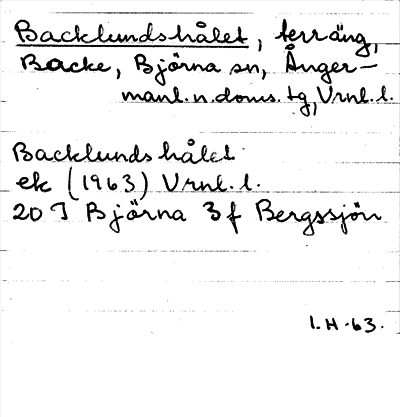 Backlundshålet, terräng,
Backe, Björna sn, Ånger-
manl. n. doms. tg, Vrnl. l.
Backlundshålet
ek (1963) Vrnl. l.
20 I Björna 3 f Bergssjön
l. H. 63.